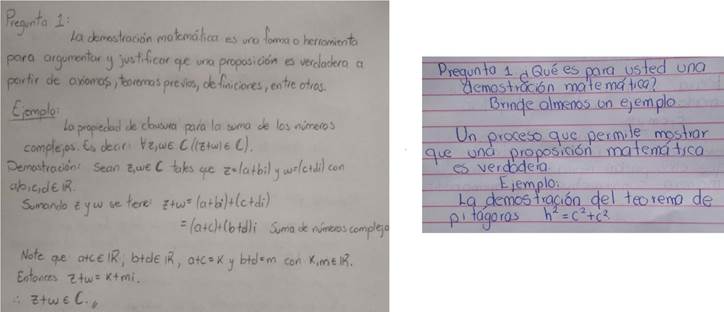 Pregunta 1:
La demostración matemática es una forma o herramienta
para argumentar y justificar que una proposición es verdadera a
partir de axiomas, teoremas previos, definiciones, entre otros.
Ejemplo:
La propiedad de clausura para la suma de los números
complejos. Es decir: ∀z,w∈C ((z+w)∈C).
Demostración: Sean z,w∈C tales que z=(a+bi) y w=(c+di) con
a,b,c,d∈IR.
Sumando z y w se tiene: z+w=(a+bi)+(c+di)
=(a+c)+(b+d)i Suma de números complejos
Note que: a+c∈IR, b+d∈IR, a+c=K y b+d=m con K,m∈IR.
Entonces z+w=K+mi.
∴ z+w∈C.
Pregunta 1 ¿Qué es para usted una
demostración matemática?
Brinde almenos un ejemplo.
Un proceso que permite mostrar
que una proposición matemática
es verdadera.
Ejemplo:
La demostración del teorema de
pitágoras h²=c²+c²